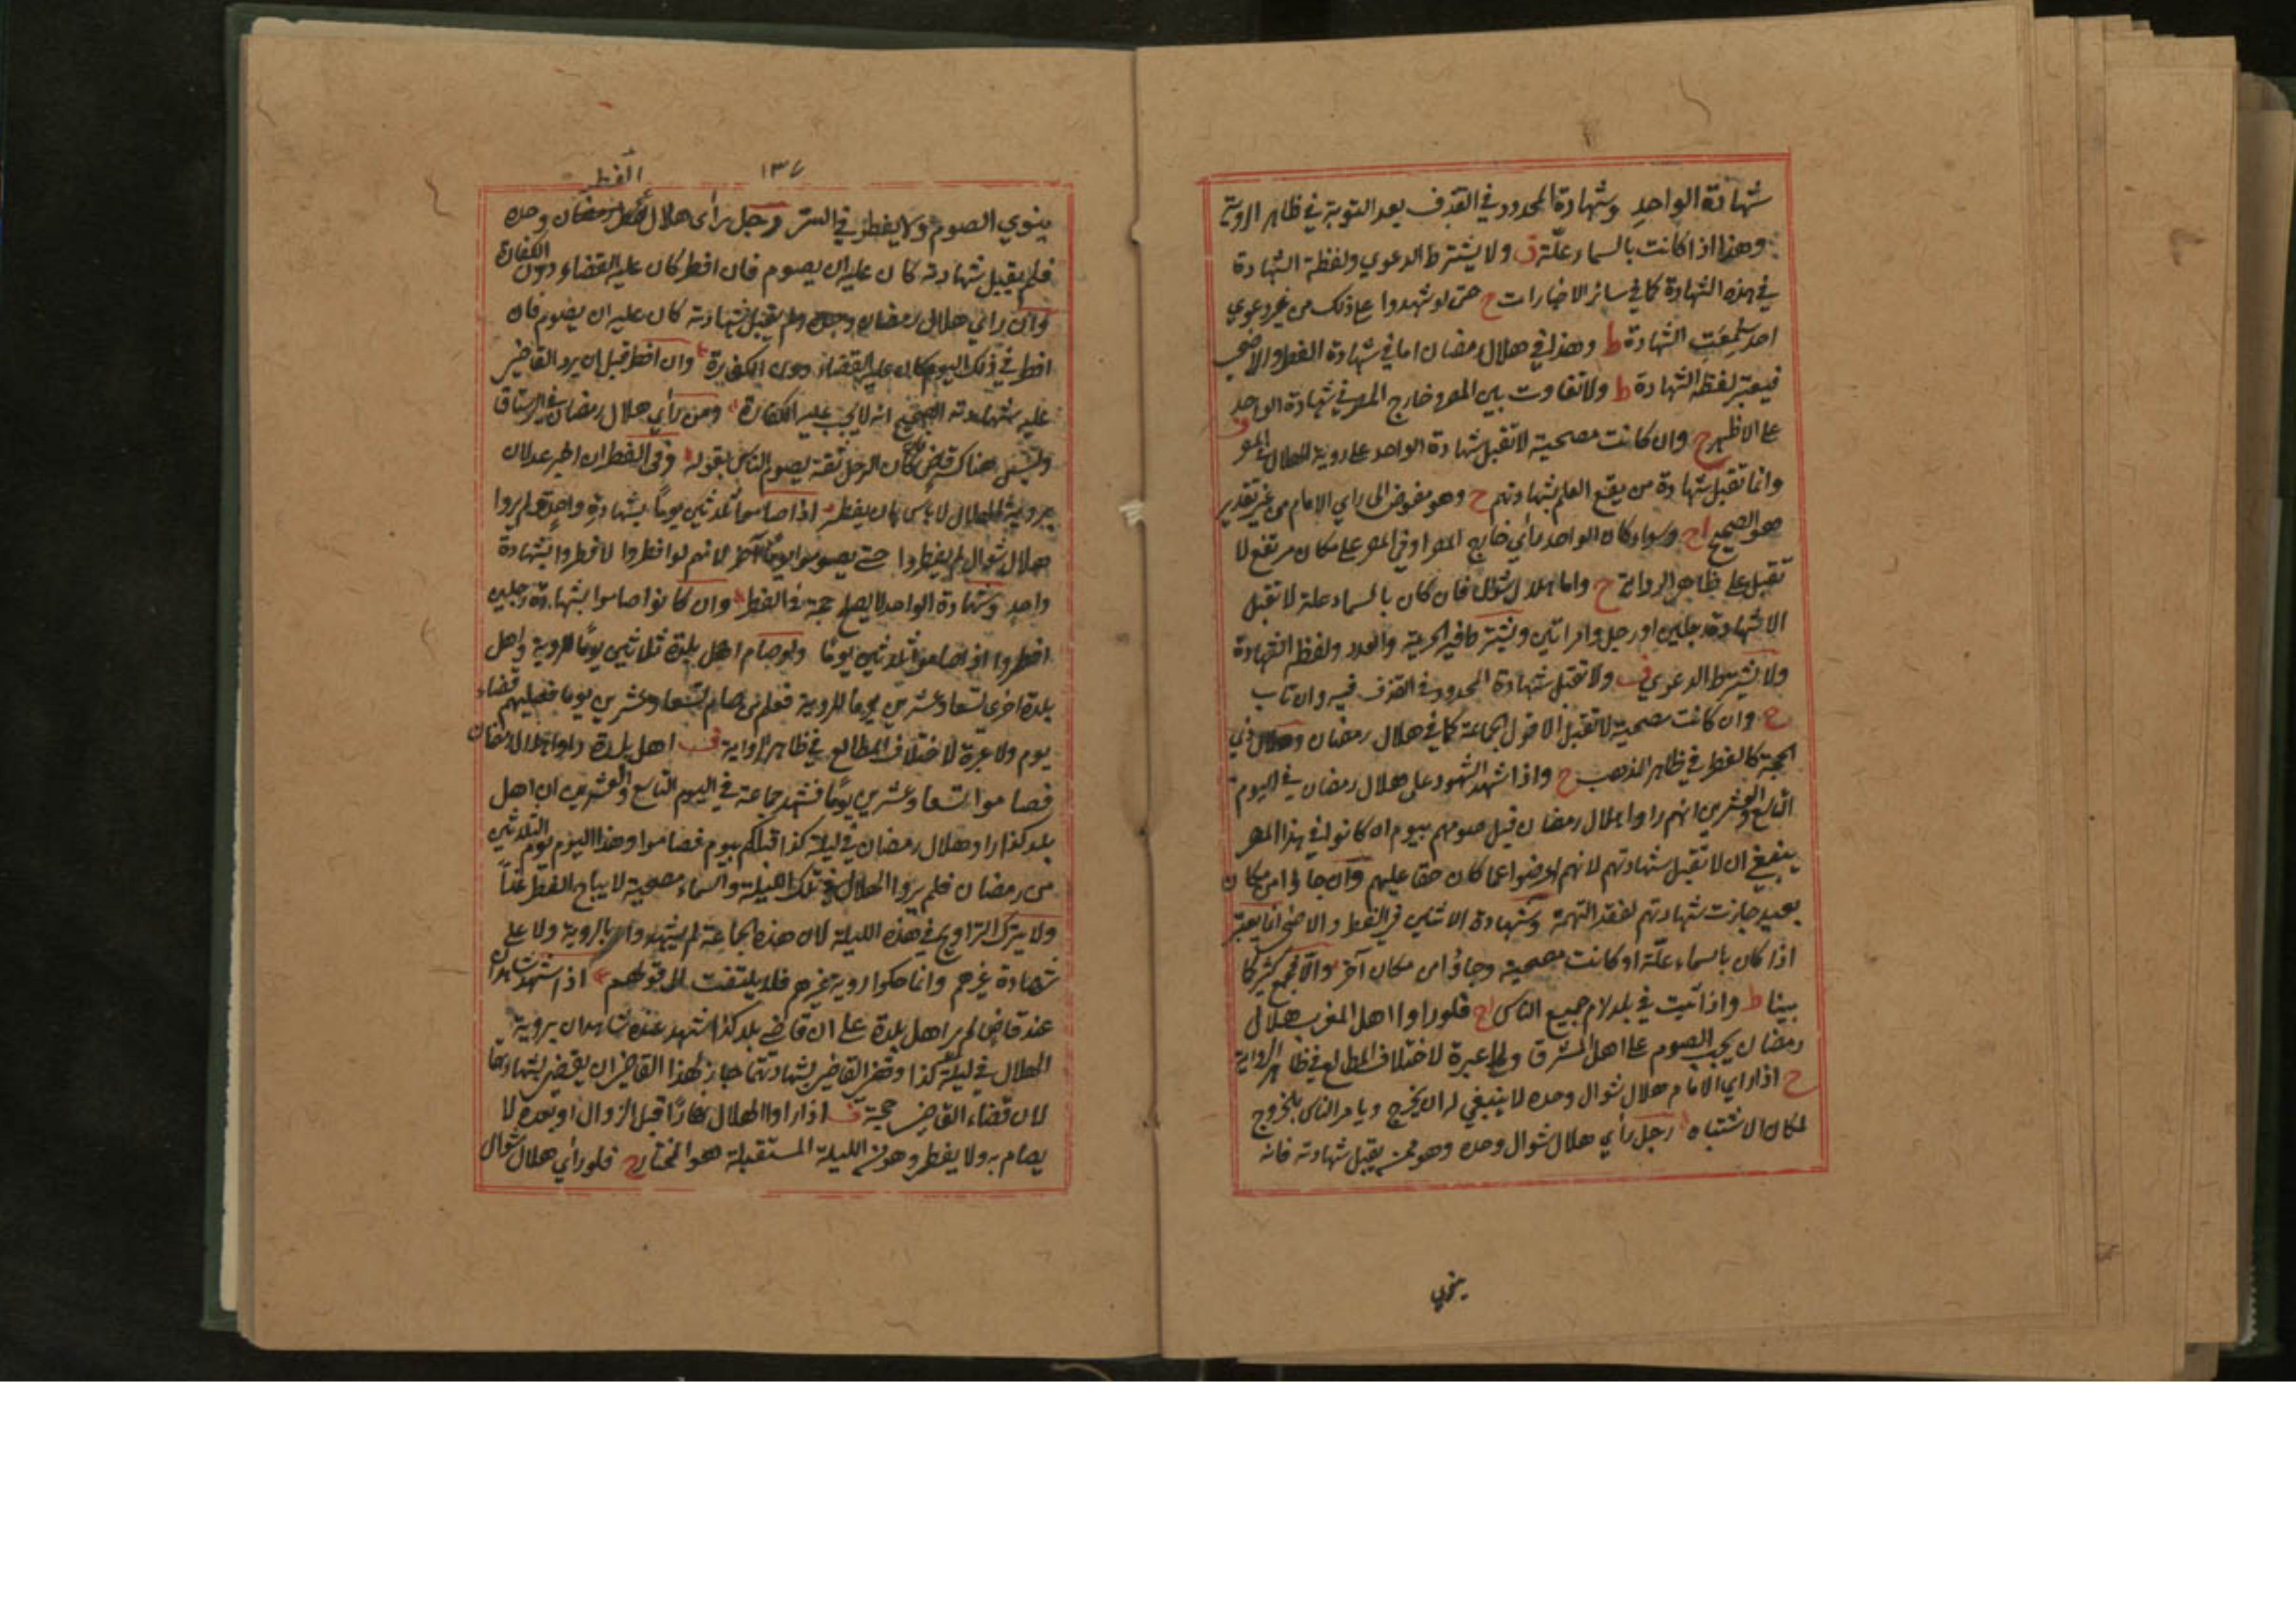 شهادة الواحد وشهادة المحدود في القذف بعد التوبة في ظاهر الروية
وهذا اذا كانت بالسماء علّة ق ولا يشترط الدعوي ولفظة الشهادة
في هذه الشهادة كما في سائر الاخبارات ح حتى لو شهدوا على ذلك من غير دعوي
احد سُمِعَتِ الشهادة ط وهذا في هلال رمضان اما في شهادة الفطر والاضحى
فيعتبر لفظ الشهادة ط ولا تفاوت بين المصر وخارج المصر في شهادة الواحد
على الاظهر ح وان كانت مصحية لا تقبل شهادة الواحد على روية الهلال في المصر
وانما تقبل شهادة من يقع العلم بشهادتهم ح وهو مفوض الى راي الامام من غير تقدير
هو الصحيح اج وسواء كان الواحد رأي خارج المصر او في المصر على مكان مرتفع لا
تقبل على ظاهر الرواية ح واما هلال شوال فان كان بالسماء علة لا تقبل
الا شهادة رجلين او رجل وامراتين ويشترط فيه الحرية والعدد ولفظ الشهادة
ولا يشترط الدعوي ف ولا تقبل شهادة المحدود في القذف فيه وان تاب
ح وان كانت مصحية لا تقبل الا قول الجماعة كما في هلال رمضان وهلال ذي
الحجة كالفطر في ظاهر المذهب ح واذا شهد الشهود على هلال رمضان في اليوم
التاسع والعشرين انهم راوا هلال رمضان قبل صومهم بيوم ان كانوا في هذا المصر
ينبغي ان لا تقبل شهادتهم لانهم اعرضوا عما كان حقا عليهم وان جاؤا من مكان
بعيد جازت شهادتهم لفقد التهمة وشهادة الاثنين في الفطر والاضحى انما يعتبر
اذا كان بالسماء علّة او كانت مصحية وجاؤا من مكان آخر والا فجمع كثير كما
بينا ط واذا ثبت في بلد لزم جميع الناس اج فلو راوا اهل المغرب هلال
رمضان يجب الصوم على اهل المشرق ولا عبرة لاختلاف المطالع في ظاهر الرواية
ح اذا راي الامام هلال شوال وحده لا ينبغي له ان يخرج ويامر الناس بالخروج
لمكان الاشتباه رجل رأي هلال شوال وحده وهو ممن يقبل شهادته فانه
ينوي
١٣٧
الفطر
ينوي الصوم ولا يفطر في السر رجل رأى هلال رمضان وحده
فلم يقبل شهادته كان عليه ان يصوم فان افطر كان عليه القضاء دون الكفارة
وان رأي هلال رمضان وحده ولم يقبل شهادته كان عليه ان يصوم فان
افطر في ذلك اليوم كان عليه القضاء دون الكفارة وان افطر قبل ان يرد القاضي
عليه شهادته الصحيح انه لا يجب عليه الكفارة ومن رأي هلال رمضان في الرستاق
وليس هناك قاض كان الرجل ثقة يصوم الناس بقوله وفي الفطر ان اخبر عدلان
بروية الهلال لا بأس بان يفطر اذا صاموا ثلاثين يوماً بشهادة واحد ولم يروا
هلال شوال لم يفطروا حتى يصوموا يوما آخر لانهم لو افطروا لافطروا بشهادة
واحد وشهادة الواحد لا يصلح حجة في الفطر وان كانوا صاموا بشهادة رجلين
افطروا اذا صاموا ثلاثين يوما ولو صام اهل بلدة ثلاثين يوما للروية واهل
بلدة اخرى تسعا وعشرين يوما للروية فعلم من صام تسعا وعشرين يوما فعليهم قضاء
يوم ولا عبرة لاختلاف المطالع في ظاهر الرواية ف اهل بلدة راوا هلال رمضان
فصاموا تسعا وعشرين يوما فشهد جماعة في اليوم التاسع والعشرين ان اهل
بلد كذا راوا هلال رمضان في ليلة كذا قبلكم بيوم فصاموا وهذا اليوم يوم الثلاثين
من رمضان فلم يروا الهلال في تلك الليلة والسماء مصحية لا يباح الفطر غداً
ولا يترك التراويح في هذه الليلة لان هذه الجماعة لم يشهدوا بالروية ولا على
شهادة غيرهم وانما حكوا روية غيرهم فلا يلتفت الى قولهم اذا شهد شاهدان
عند قاض لم ير اهل بلدة على ان قاضي بلد كذا شهد عنده شاهدان بروية
الهلال في ليلة كذا وقضى القاضي بشهادتهما جاز لهذا القاضي ان يقضي بشهادتهما
لان قضاء القاضي حجة ف اذا راوا الهلال نهارًا قبل الزوال او بعده لا
يصام به ولا يفطر وهو من الليلة المستقبلة هو المختار ح فلو رأي هلال شوال